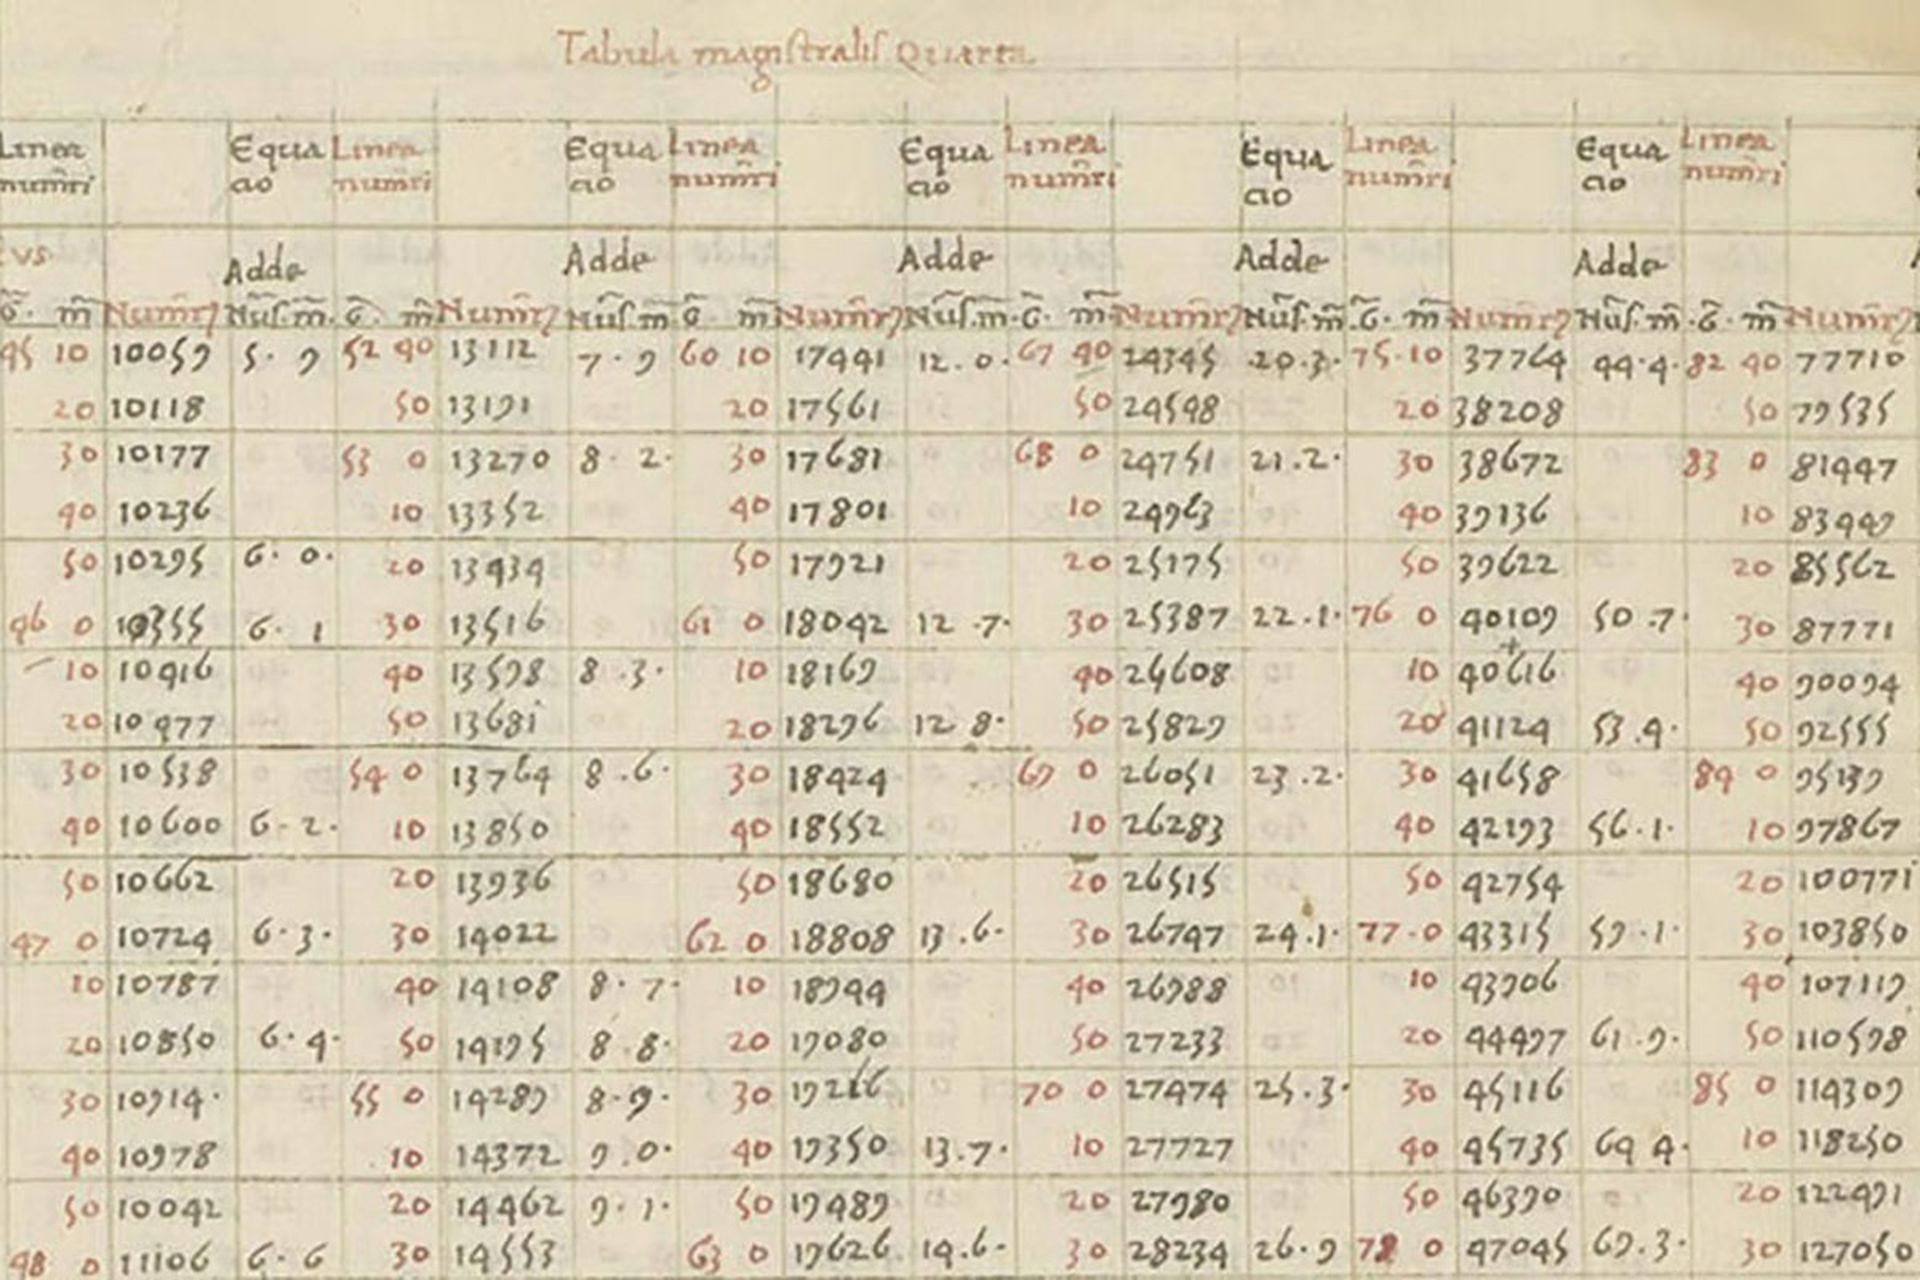 Tabula magistralis Quarta
Linea Equa Linea Equa Linea Equa Linea Equa Linea Equa Linea
numri cio numri cio numri cio numri cio numri cio numri
Adde Adde Adde Adde Adde
g̃. m̃ Numrꝫ Nũs. m̃. g̃. m̃ Numrꝫ Nũs. m̃ g̃ m̃ Numrꝫ Nũs. m̃. g̃. m̃ Numrꝫ Nũs. m̃. g̃. m̃ Numrꝫ Nũs. m̃. g̃. m̃ Numrꝫ
45 10 10059 5 . 9 52 40 13112 7 . 9 60 10 17441 12 . 0 . 67 40 24345 20 . 3 . 75 . 10 37764 44 . 4 . 82 40 77710
20 10118 50 13191 20 17561 50 24548 20 38208 50 79535
30 10177 53 0 13270 8 . 2 . 30 17681 68 0 24751 21 . 2 . 30 38672 83 0 81447
40 10236 10 13352 40 17801 10 24963 40 39136 10 83449
50 10295 6 . 0 . 20 13434 50 17921 20 25175 50 39622 20 85562
46 0 10355 6 . 1 30 13516 61 0 18042 12 . 7 . 30 25387 22 . 1 . 76 0 40109 50 . 7 . 30 87771
10 10416 40 13598 8 . 3 . 10 18169 40 10 40616 40 90094
20 10477 50 13681 20 18296 12 8 . 50 25829 20 41124 53 . 4 . 50 92555
30 10538 54 0 13764 8 . 6 . 30 18424 69 0 26051 23 . 2 . 30 41658 84 0 95139
40 10600 6 . 2 . 10 13850 40 18552 10 26283 40 42193 56 . 1 . 10 97867
50 10662 20 13936 50 18680 20 26515 50 42754 20 100771
47 0 10724 6 . 3 . 30 14022 62 0 18808 13 . 6 . 30 26747 24 . 1 . 77 . 0 43315 59 . 1 . 30 103850
10 10787 40 14108 8 . 7 . 10 18944 40 26988 10 43906 40 107119
20 10850 6 . 4 . 50 14195 8 . 8 . 20 19080 50 27233 20 44497 61 . 9 . 50 110598
30 10914 . 55 0 14289 8 . 9 . 30 70 0 27474 25 . 3 . 30 45116 85 0 114309
40 10978 10 14372 9 . 0 . 40 19350 13 . 7 . 10 27727 40 45735 64 4 . 10 118250
50 10042 20 14462 9 . 1 . 50 19489 20 27980 50 46390 20 122491
48 0 11106 6 . 6 30 14553 63 0 19626 14 . 6 . 30 28234 26 . 9 78 0 47045 69 . 3 . 30 127050